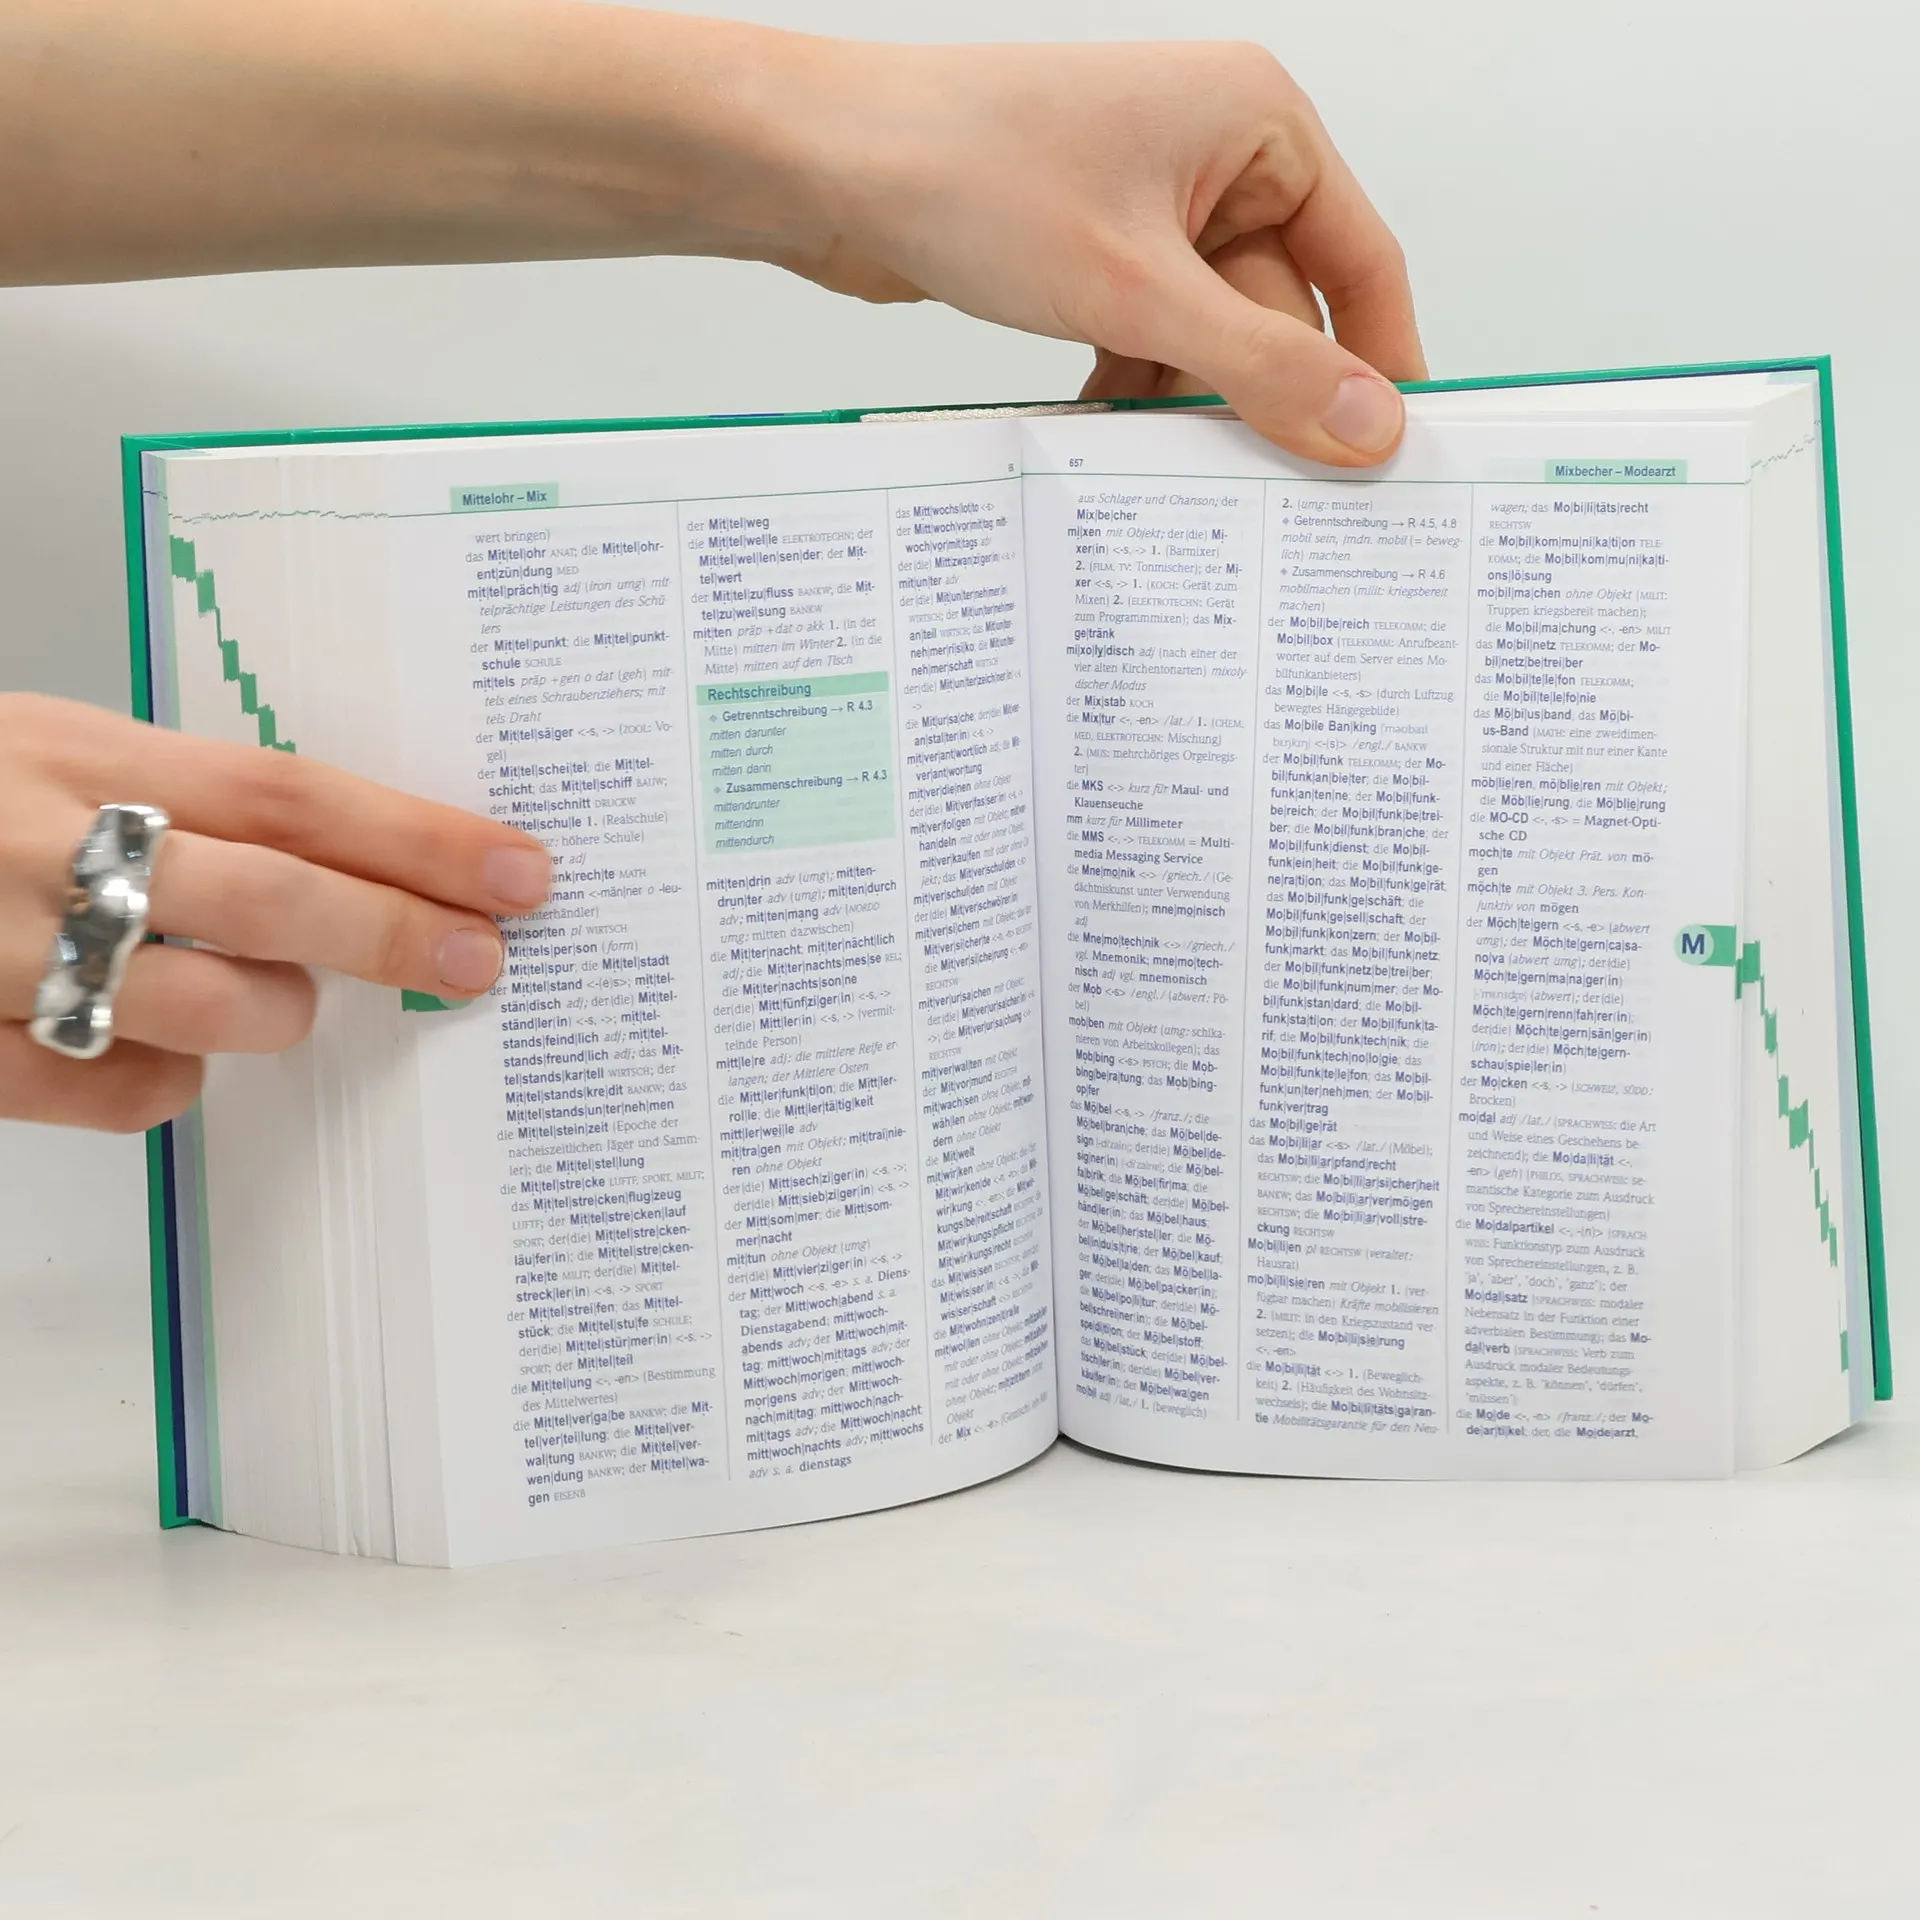 Mittelohr – Mix
wert bringen)
das Mit|tel|ohr ANAT; die Mit|tel|ohr-
ent|zün|dung MED
mit|tel|präch|tig adj (iron umg) mit-
telprächtige Leistungen des Schü-
lers
der Mit|tel|punkt; die Mit|tel|punkt-
schule SCHULE
mit|tels präp +gen o dat (geh) mit-
tels eines Schraubenziehers; mit-
tels Draht
der Mit|tel|sä|ger <-s, -> (ZOOL: Vo-
gel)
der Mit|tel|schei|tel; die Mit|tel-
schicht; das Mit|tel|schiff BAUW;
der Mit|tel|schnitt DRUCKW
Mit|tel|schu|le 1. (Realschule)
höhere Schule)
adj
enk|rech|te MATH
mann <-män|ner o -leu-
te> (Unterhändler)
tel|sor|ten pl WIRTSCH
Mit|tels|per|son (form)
Mit|tel|spur; die Mit|tel|stadt
der Mit|tel|stand <-(e)s>; mit|tel-
stän|disch adj; der(die) Mit|tel-
ständ|ler(in) <-s, ->; mit|tel-
stands|feind|lich adj; mit|tel-
stands|freund|lich adj; das Mit-
tel|stands|kar|tell WIRTSCH; der
Mit|tel|stands|kre|dit BANKW; das
Mit|tel|stands|un|ter|neh|men
die Mit|tel|stein|zeit (Epoche der
nacheiszeitlichen Jäger und Samm-
ler); die Mit|tel|stel|lung
die Mit|tel|stre|cke LUFTF, SPORT, MILIT;
das Mit|tel|stre|cken|flug|zeug
LUFTF; der Mit|tel|stre|cken|lauf
SPORT; der(die) Mit|tel|stre|cken-
läu|fer(in); die Mit|tel|stre|cken-
ra|ke|te MILIT; der(die) Mit|tel-
streck|ler(in) <-s, -> SPORT
der Mit|tel|strei|fen; das Mit|tel-
stück; die Mit|tel|stu|fe SCHULE;
der(die) Mit|tel|stür|mer(in) <-s, ->
SPORT; der Mit|tel|teil
die Mit|te|lung <-, -en> (Bestimmung
des Mittelwertes)
die Mit|tel|ver|ga|be BANKW; die Mit-
tel|ver|tei|lung; die Mit|tel|ver-
wal|tung BANKW; die Mit|tel|ver-
wen|dung BANKW; der Mit|tel|wa-
gen EISENB
der Mit|tel|weg
die Mit|tel|wel|le ELEKTROTECHN; der
Mit|tel|wel|len|sen|der; der Mit-
tel|wert
der Mit|tel|zu|fluss BANKW; die Mit-
tel|zu|wei|sung BANKW
mit|ten präp +dat o akk 1. (in der
Mitte) mitten im Winter 2. (in die
Mitte) mitten auf den Tisch
Rechtschreibung
Getrenntschreibung → R 4.3
mitten darunter
mitten durch
mitten darin
Zusammenschreibung → R 4.3
mittendrunter
mittendrin
mittendurch
mit|ten|drin adv (umg); mit|ten-
drun|ter adv (umg); mit|ten|durch
adv; mit|ten|mang adv (NORDD
umg: mitten dazwischen)
die Mit|ter|nacht; mit|ter|nächt|lich
adj; die Mit|ter|nachts|mes|se REL;
die Mit|ter|nachts|son|ne
der(die) Mitt|fünf|zi|ger(in) <-s, ->
der(die) Mitt|ler(in) <-s, -> (vermit-
telnde Person)
mitt|le|re adj: die mittlere Reife er-
langen; der Mittlere Osten
die Mitt|ler|funk|ti|on; die Mitt|ler-
rol|le; die Mitt|ler|tä|tig|keit
mitt|ler|wei|le adv
mit|tra|gen mit Objekt; mit|trai|nie-
ren ohne Objekt
der(die) Mitt|sech|zi|ger(in) <-s, ->;
der(die) Mitt|sieb|zi|ger(in) <-s, ->
der Mitt|som|mer; die Mitt|som-
mer|nacht
mit|tun ohne Objekt (umg)
der(die) Mitt|vier|zi|ger(in) <-s, ->
der Mitt|woch <-s, -e> s. a. Diens-
tag; der Mitt|woch|abend s. a.
Dienstagabend; mitt|woch-
abends adv; der Mitt|woch|mit-
tag; mitt|woch|mit|tags adv; der
Mitt|woch|mor|gen; mitt|woch-
mor|gens adv; der Mitt|woch-
nach|mit|tag; mitt|woch|nach-
mit|tags adv; die Mitt|woch|nacht
mitt|woch|nachts adv; mitt|wochs
adv s. a. dienstags
das Mitt|wochs|lot|to <-s>
der Mitt|woch|vor|mit|tag; mitt-
woch|vor|mit|tags adv
der(die) Mitt|zwan|zi|ger(in)
mit|un|ter adv
der(die) Mit|un|ter|neh|mer(in)
die Mit|ur|sa|che; der(die) Mit|ver-
an|stal|ter(in) <-s, ->
mit|ver|ant|wort|lich adj; die Mit-
ver|ant|wor|tung
mit|ver|die|nen ohne Objekt
der(die) Mit|ver|fas|ser(in)
mit|ver|fol|gen mit Objekt; mit|ver-
han|deln mit oder ohne Objekt
mit|ver|kau|fen mit oder ohne
mit|ver|schul|den mit Objekt
mit|ver|si|chern mit Objekt
die Mit|ver|si|che|rung
RECHTSW
mit|ver|ur|sa|chen mit Objekt;
RECHTSW
mit|ver|wal|ten mit Objekt
der Mit|vor|mund RECHTSW
mit|wach|sen ohne Objekt; mit-
wäh|len ohne Objekt; mit|wan-
dern ohne Objekt
die Mit|welt
mit|wir|ken ohne Objekt
Objekt
der Mix
657
Mixbecher – Modearzt
aus Schlager und Chanson; der
Mix|be|cher
mi|xen mit Objekt; der(die) Mi-
xer(in) <-s, -> 1. (Barmixer)
2. (FILM, TV: Tonmischer); der Mi-
xer <-s, -> 1. (KOCH: Gerät zum
Mixen) 2. (ELEKTROTECHN: Gerät
zum Programmmixen); das Mix-
ge|tränk
mi|xo|ly|disch adj (nach einer der
vier alten Kirchentonarten) mixoly-
discher Modus
der Mix|stab KOCH
die Mix|tur <-, -en> /lat./ 1. (CHEM,
MED, ELEKTROTECHN: Mischung)
2. (MUS: mehrchöriges Orgelregis-
ter)
die MKS <-> kurz für Maul- und
Klauenseuche
mm kurz für Millimeter
die MMS <-, -> TELEKOMM = Multi-
media Messaging Service
die Mne|mo|nik <-> /griech./ (Ge-
dächtniskunst unter Verwendung
von Merkhilfen); mne|mo|nisch
adj
die Mne|mo|tech|nik <-> /griech./
vgl. Mnemonik; mne|mo|tech-
nisch adj vgl. mnemonisch
der Mob <-s> /engl./ (abwert: Pö-
bel)
mob|ben mit Objekt (umg: schika-
nieren von Arbeitskollegen); das
Mob|bing <-s> PSYCH; die Mob-
bing|be|ra|tung; das Mob|bing-
op|fer
das Mö|bel <-s, -> /franz./; die
Mö|bel|bran|che; das Mö|bel|de-
sign [-dizain]; der(die) Mö|bel|de-
sig|ner(in) [-dizaine]; die Mö|bel-
fa|b|rik; die Mö|bel|fir|ma; die
Mö|bel|ge|schäft; der(die) Mö|bel-
händ|ler(in); das Mö|bel|haus;
der Mö|bel|her|stel|ler; die Mö-
bel|in|dus|t|rie; der Mö|bel|kauf;
der Mö|bel|la|den; das Mö|bel|la-
ger; der(die) Mö|bel|pa|cker(in);
die Mö|bel|po|li|tur; der(die) Mö-
bel|schrei|ner(in); die Mö|bel-
spe|di|ti|on; der Mö|bel|stoff;
das Mö|bel|stück; der(die) Mö|bel-
tisch|ler(in); der(die) Mö|bel|ver-
käu|fer(in); der Mö|bel|wa|gen
mo|bil adj /lat./ 1. (beweglich)
2. (umg: munter)
Getrenntschreibung → R 4.5, 4.8
mobil sein, jmdn. mobil (= beweg-
lich) machen
Zusammenschreibung → R 4.6
mobilmachen (milit: kriegsbereit
machen)
der Mo|bil|be|reich TELEKOMM; die
Mo|bil|box (TELEKOMM: Anrufbeant-
worter auf dem Server eines Mo-
bilfunkanbieters)
das Mo|bi|le <-s, -s> (durch Luftzug
bewegtes Hängegebilde)
das Mo|bile Ban|king
<-(s)> /engl./ BANKW
der Mo|bil|funk TELEKOMM; der Mo-
bil|funk|an|bie|ter; die Mo|bil-
funk|an|ten|ne; der Mo|bil|funk-
be|reich; der Mo|bil|funk|be|trei-
ber; die Mo|bil|funk|bran|che; der
Mo|bil|funk|dienst; die Mo|bil-
funk|ein|heit; die Mo|bil|funk|ge-
ne|ra|ti|on; das Mo|bil|funk|ge|rät;
das Mo|bil|funk|ge|schäft; die
Mo|bil|funk|ge|sell|schaft; der
Mo|bil|funk|kon|zern; der Mo|bil-
funk|markt; das Mo|bil|funk|netz;
der Mo|bil|funk|netz|be|trei|ber;
die Mo|bil|funk|num|mer; der Mo-
bil|funk|stan|dard; die Mo|bil-
funk|sta|ti|on; der Mo|bil|funk|ta-
rif; die Mo|bil|funk|tech|nik; die
Mo|bil|funk|tech|no|lo|gie; das
Mo|bil|funk|te|le|fon; das Mo|bil-
funk|un|ter|neh|men; der Mo|bil-
funk|ver|trag
das Mo|bil|ge|rät
das Mo|bi|li|ar <-s> /lat./ (Möbel);
das Mo|bi|li|ar|pfand|recht
RECHTSW; die Mo|bi|li|ar|si|cher|heit
BANKW; das Mo|bi|li|ar|ver|mö|gen
RECHTSW; die Mo|bi|li|ar|voll|stre-
ckung RECHTSW
Mo|bi|li|en pl RECHTSW (veraltet:
Hausrat)
mo|bi|li|sie|ren mit Objekt 1. (ver-
fügbar machen) Kräfte mobilisieren
2. (MILIT: in den Kriegszustand ver-
setzen); die Mo|bi|li|sie|rung
<-, -en>
die Mo|bi|li|tät <-> 1. (Beweglich-
keit) 2. (Häufigkeit des Wohnsitz-
wechsels); die Mo|bi|li|täts|ga|ran-
tie Mobilitätsgarantie für den Neu-
wagen; das Mo|bi|li|täts|recht
RECHTSW
die Mo|bil|kom|mu|ni|ka|ti|on TELE-
KOMM; die Mo|bil|kom|mu|ni|ka|ti-
ons|lö|sung
mo|bil|ma|chen ohne Objekt (MILIT:
Truppen kriegsbereit machen);
die Mo|bil|ma|chung <-, -en> MILIT
das Mo|bil|netz TELEKOMM; der Mo-
bil|netz|be|trei|ber
das Mo|bil|te|le|fon TELEKOMM;
die Mo|bil|te|le|fo|nie
das Mö|bi|us|band, das Mö|bi-
us-Band (MATH: eine zweidimen-
sionale Struktur mit nur einer Kante
und einer Fläche)
möb|lie|ren, mö|blie|ren mit Objekt;
die Möb|lie|rung, die Mö|blie|rung
die MO-CD <-, -s> = Magnet-Opti-
sche CD
moch|te mit Objekt Prät. von mö-
gen
möch|te mit Objekt 3. Pers. Kon-
junktiv von mögen
der Möch|te|gern <-s, -e> (abwert
umg); der Möch|te|gern|ca|sa-
no|va (abwert umg); der(die)
Möch|te|gern|ma|na|ger(in)
(abwert); der(die)
Möch|te|gern|renn|fah|rer(in);
der(die) Möch|te|gern|sän|ger(in)
(iron); der(die) Möch|te|gern-
schau|spie|ler(in)
der Mo|cken <-s, -> (SCHWEIZ, SÜDD:
Brocken)
mo|dal adj /lat./ (SPRACHWISS: die Art
und Weise eines Geschehens be-
zeichnend); die Mo|da|li|tät <-,
-en> (geh) (PHILOS, SPRACHWISS: se-
mantische Kategorie zum Ausdruck
von Sprechereinstellungen)
die Mo|dalpartikel <-, -(n)> (SPRACH
WISS: Funktionstyp zum Ausdruck
von Sprechereinstellungen, z. B.
'ja', 'aber', 'doch', 'ganz'); der
Mo|dal|satz (SPRACHWISS: modaler
Nebensatz in der Funktion einer
adverbialen Bestimmung); das Mo-
dal|verb (SPRACHWISS: Verb zum
Ausdruck modaler Bedeutungs-
aspekte, z. B. 'können', 'dürfen',
'müssen')
die Mo|de <-, -n> /franz./; der Mo-
de|ar|ti|kel; der, die Mo|de|arzt,
M